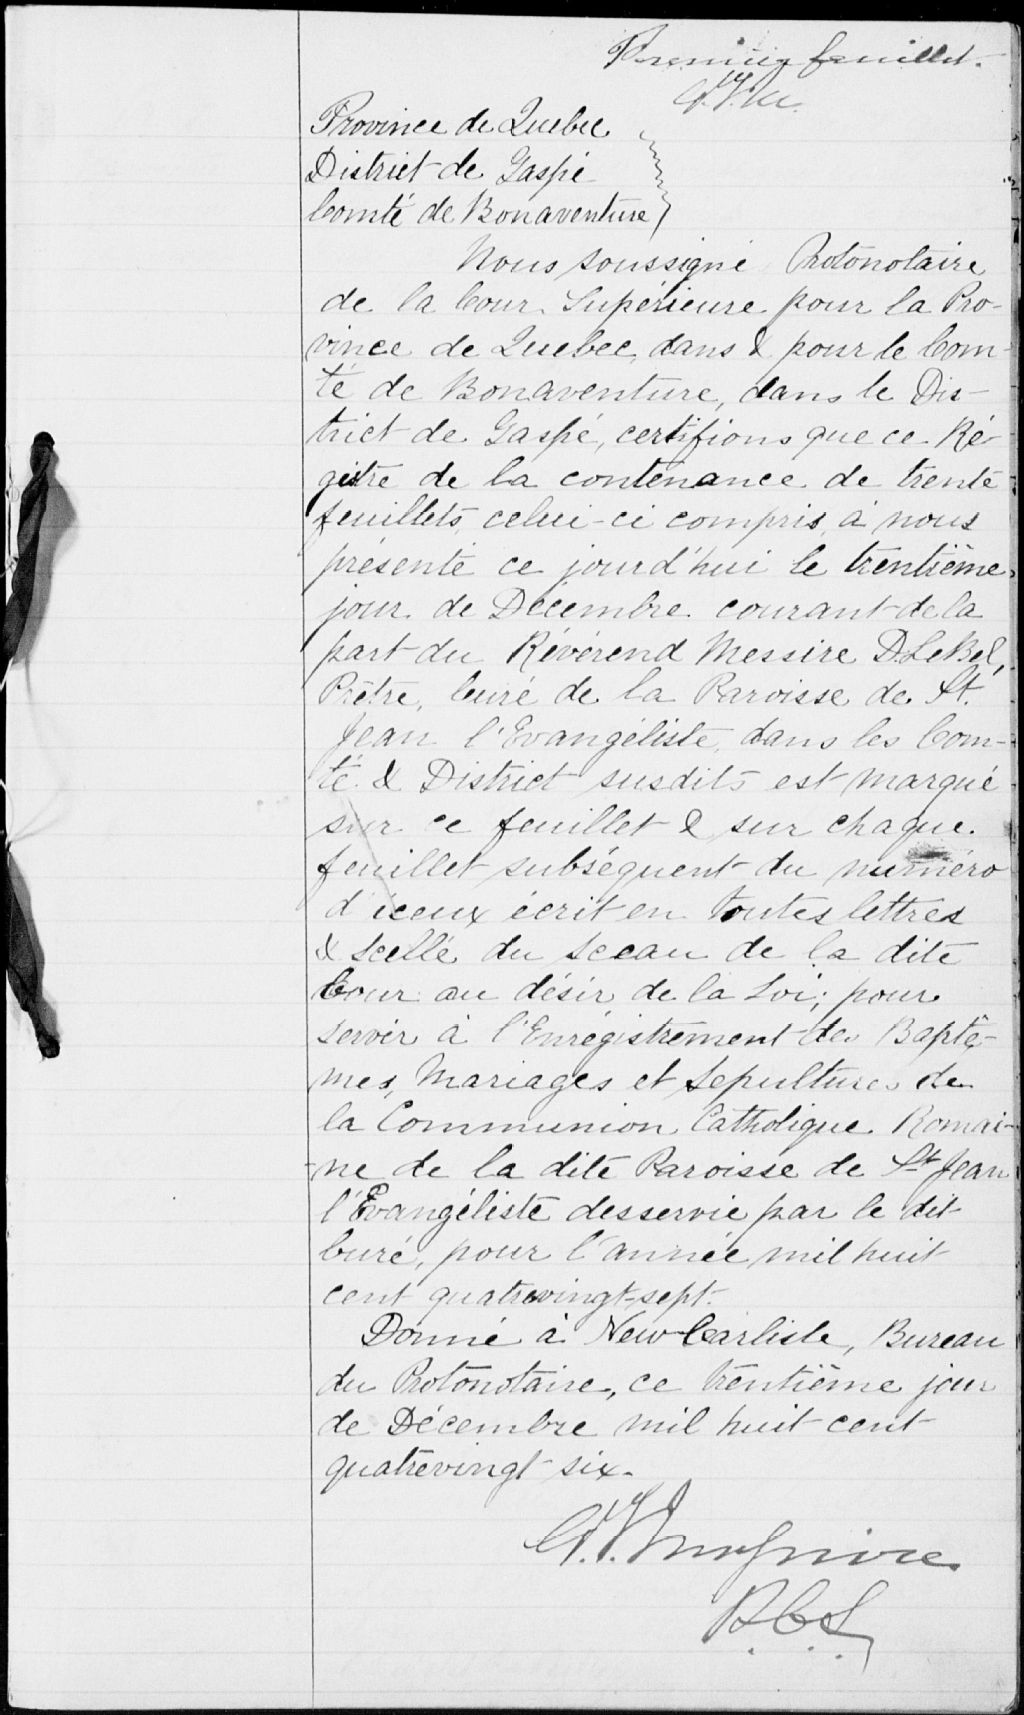 Premier feuillet.
Province de Quebec
District de Gaspé
Comté de Bonaventure
Nous soussigné Protonotaire
de la Cour Supérieure pour la Pro-
vince de Quebec, dans & pour le Com-
té de Bonaventure, dans le Dis-
trict de Gaspé, certifions que ce Ré-
gistre de la contenance de trente
feuillets, celui-ci compris, à nous
présenté ce jourd'hui le trentième
jour de Décembre courant de la
part du Révérend Messire D. LeBel,
Prêtre, Curé de la Paroisse de St.
Jean l'Evangéliste, dans les Com-
té & District susdits est marqué
sur ce feuillet & sur chaque
feuillet subséquent du numéro
d'iceux écrit en toutes lettres
& scellé du sceau de la dite
Cour au désir de la Loi; pour
servir à l'Enregistrement des Baptê-
mes, Mariages et Sepultures de
la Communion Catholique Romai-
ne de la dite Paroisse de St Jean
l'Evangéliste desservie par le dit
Curé, pour l'année mil huit
cent quatrevingt-sept.
Donné à New Carlisle, Bureau
du Protonotaire, ce trentième jour
de Décembre mil huit cent
quatrevingt-six.
P.C.S.